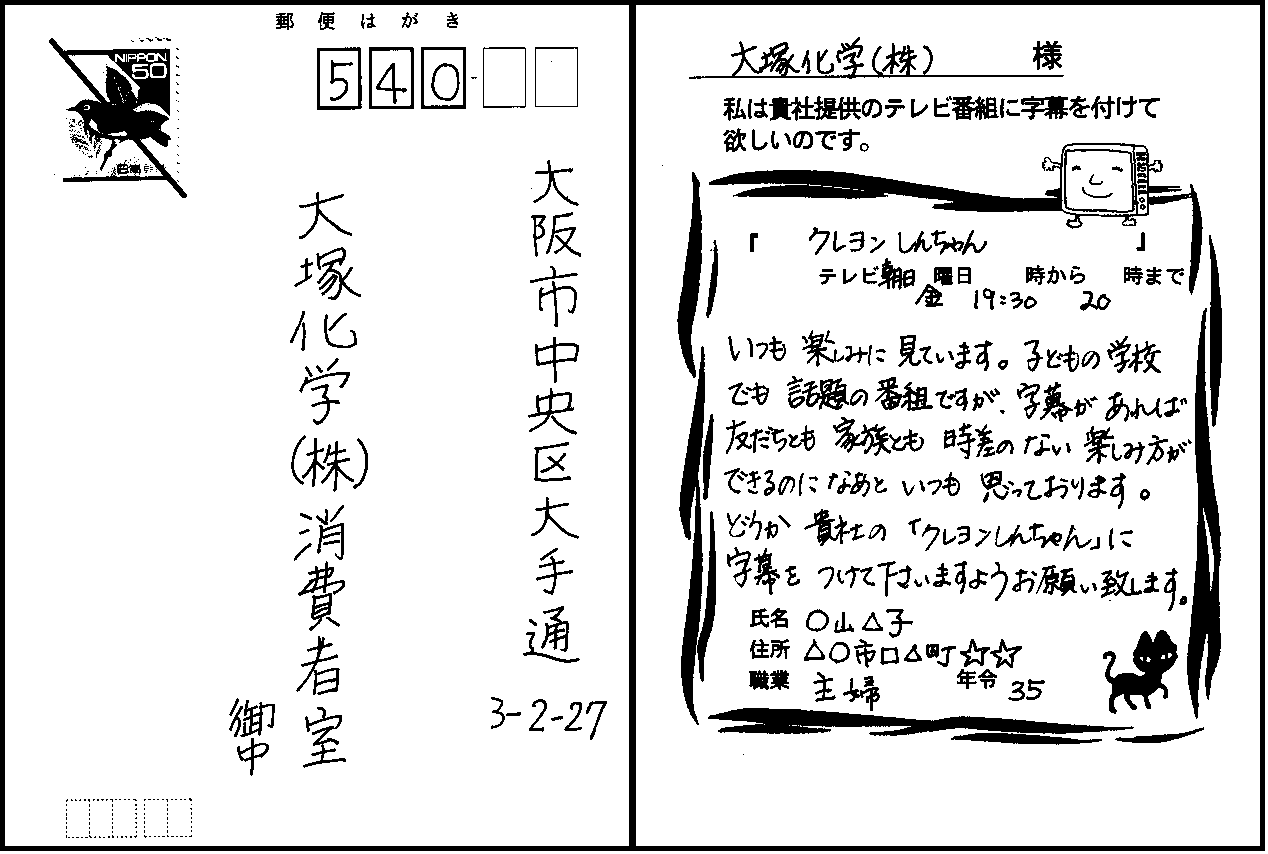 郵便はがき
NIPPON
50
日本郵便
540-
大阪市中央区大手通
3-2-27
大塚化学(株)消費者室
御中
大塚化学(株) 様
私は貴社提供のテレビ番組に字幕を付けて
欲しいのです。
『 クレヨンしんちゃん 』
テレビ朝日 曜日 時から 時まで
金 19:30 20
いつも楽しみに見ています。子どもの学校
でも話題の番組ですが、字幕があれば
友だちとも家族とも時差のない楽しみ方が
できるのになあといつも思っております。
どうか貴社の「クレヨンしんちゃん」に
字幕をつけて下さいますようお願い致します。
氏名 ○山△子
住所 △○市□△町☆☆
職業 主婦 年令 35